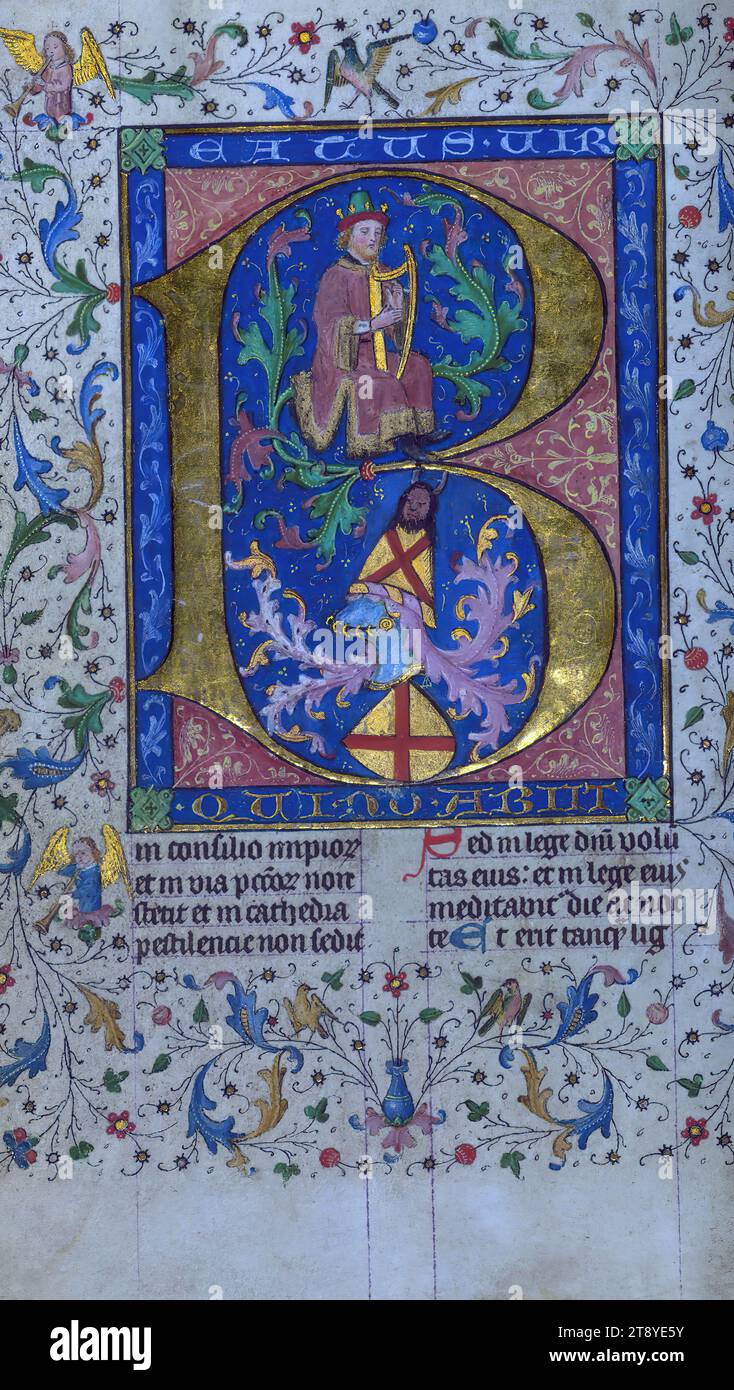 B
EATUS · VIR
· QUI NO · ABIIT
in consilio impior
et in via pccor non
stetit et in cathedra
pestilencie non sedit
Sed in lege dni volu
tas eius: et in lege eius
meditabit die ac noc
te Et erit tanq lig
alamy
Image ID: 2T8YE5Y
www.alamy.com